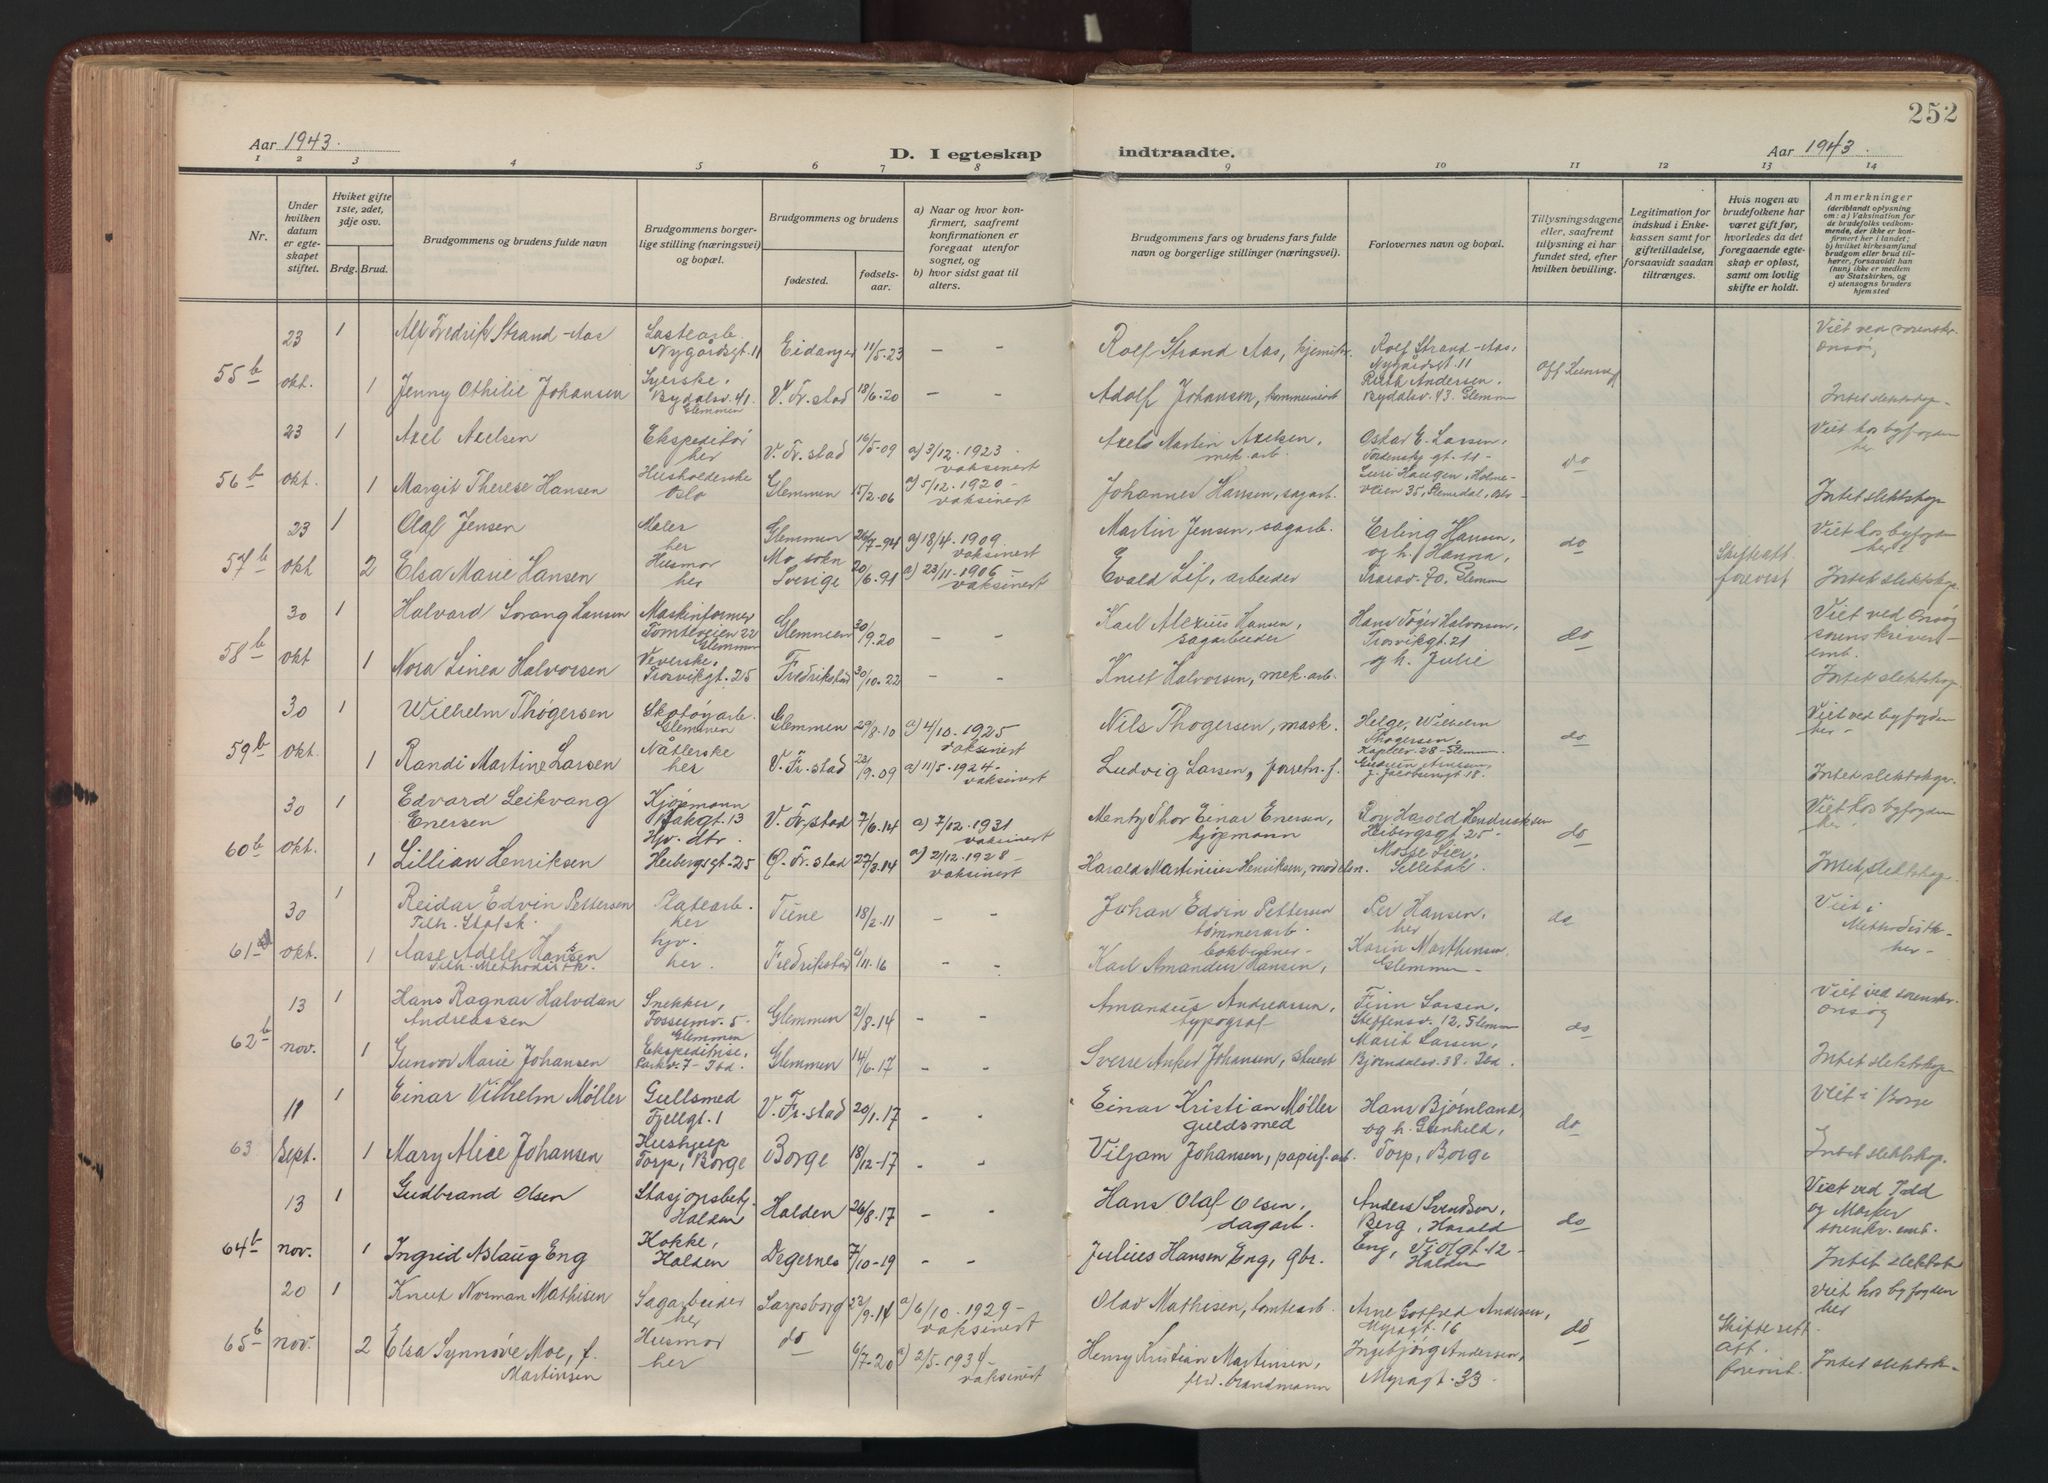 252
Aar 1943.
D. I egteskap
indtraadte.
Aar 1943.
1 2 3 4 5 6 7 8 9 10 11 12 13 14
Nr.
Under hvilken datum er egteskapet stiftet.
Hviket gifte 1ste, 2det, 3dje osv.
Brdg. Brud.
Brudgommens og brudens fulde navn
Brudgommens borgerlige stilling (næringsvei) og bopæl.
Brudgommens og brudens
fødested.
fødselsaar.
a) Naar og hvor konfirmert, saafremt konfirmationen er foregaat utenfor sognet, og
b) hvor sidst gaat til alters.
Brudgommens fars og brudens fars fulde navn og borgerlige stillinger (næringsvei).
Forlovernes navn og bopæl.
Tillysningsdagene eller, saafremt tillysning ei har fundet sted, efter hvilken bevilling.
Legitimation for indskud i Enkekassen samt for giftetilladelse, forsaavidt saadan tiltrænges.
Hvis nogen av brudefolkene har været gift før, hvorledes da det foregaaende egteskap er opløst, samt om lovlig skifte er holdt.
Anmerkninger (deriblandt oplysning om: a) Vaksination for de brudefolks vedkommende, der ikke er konfirmert her i landet; b) hvilket kirkesamfund brudgom eller brud tilhører, forsaavidt han (hun) ikke er medlem av Statskirken, og c) utensogns bruders hjemsted
55b 23 okt. 1 Alf Fredrik Strand-Aas Nygårdsgt. 11 Eidanger 11/5.23 - - Rolf Strand Aas, kjemiker Rolf Strand-Aas, Nygårdsgt 11
1 Jenny Othilie Johansen Syerske, Bydalsv. 41. Glemmen V. Fr.stad 18/6.20 - - Adolf Johansen, Ruth Andersen, Bydalsv. 43. Glemm Intet slektskap
56b 23 okt. 1 Axel Axelsen Ekspeditør her V. Fr. stad 16/5-09 a) 3/12. 1923. vaksinert Martin Axelsen, mek. arb. Oskar E. Larsen, do Viet hos byfogden her
1 Margit Therese Hansen Husholderske Oslo Glemmen 15/2.06 a) 5/12. 1920 - vaksinert Johannes Hansen, sagarb. Intet slektskap
57b 23 okt 1 Olaf Jensen Maler her Glemmen 26/7-94 a) 18/4. 1909. vaksinert Martin Jensen, sagarb. Erling Hansen, og h. Hanna, do Viet hos byfogden her
2 Elsa Marie Hansen Husmor her Mo. sokn Sverige 20/6.91 a) 23/11. 1906 - vaksinert Evald Lif, arbeider Trarav. 70. Glemm Skifteatt. forevist Intet slektskap
58b 30 okt 1 Halvard Sorang Hansen Maskinformer Tomteveien 22 Glemmen Glemmen 30/9.20 - - Karl Alexius Hansen, sagarbeider Hans Tøger Halvorsen, Trosvikgt. 21 do Viet ved Onsøy sorenskriveremb.
1 Nora Linea Halvorsen Veverske, Trosvikgt. 25 Fredrikstad 30/10.22 - - Knut Halvorsen, mek. arb. og h. Julie Intet slektskap.
59b 30 okt. 1 Wilhelm Thøgersen Skotøyarb. Glemmen Glemmen 29/8.10 a) 4/10. 1925 vaksinert Nils Thøgersen, mask. Helge Wilhelm Thøgersen, 28-Glemm. do Viet ved byfogden her-
1 Randi Martine Larsen Nåtlerske her V. Fr. stad 23/9.09 a) 11/5. 1924 - vaksinert Ludvig Larsen, forretn.f. J. Jacobsensgt 18. Intet slektskap.
60b 30 okt. 1 Edvard Leikvang Enersen Kjøpmann 13 V. Fr.stad 7/6.14 a) 7/12. 1931 vaksinert Mentz Thor Einar Enersen, kjøpmann Roy Harald Hendriksen Heibergsgt 25 - do Viet hos byfogden her
1 Lillian Henriksen Hjv. dtr. Heibergsgt. 25 Ø. Fr. stad 27/3.14 a) 2/12. 1928 - vaksinert Harald Martinius Henriksen, modelsn. Mosse Lier, Sellebak. Intet slektskap.
61 30 okt. 1 Reidar Edvin Pettersen Tilh. Statsk. Platearb. her Tune 18/2.11 - - Johan Edvin Pettersen tømmerarb. Per Hansen, her do Viet i Methodistk. her-
1 Aase Adele Hansen Tilh. Methodistk. hjv. her. Fredrikstad 6/11.16 - - bokbinder Karl Amandus Hansen, Karin Marthinsen Glemmen -
62b 13 nov. 1 Hans Ragnar Halvdan Andreassen Snekker, Fossumv. 5 - Glemmen Glemmen 2/8.14 - - Amandus Andreassen, typograf Finn Larsen, Steffensv. 12, Glemm do Viet ved sorenskr. Onsøy
1 Gunvor Marie Johansen Ekspeditrise, Parkv. 7 - Ibd. Glemmen 14/6.17 - - Sverre Anker Johansen, stuert Marit Larsen, Bjørndalsv. 38. Ibd. Intet slektskap
63 18 Sept. 1 Einar Vilhelm Møller Gullsmed Fjellgt. 1 V. Fr. stad 20/1.17 - - Einar Kristian Møller guldsmed Hans Bjørnland og h. Gunhild, do Viet i Borge
1 Mary Alice Johansen Hushjelp Torp, Borge Borge 18/12-17 - - Viljam Johansen, papirf. arb. Torp, Borge Intet slektskap.
64b 13 nov. 1 Gudbrand Olsen Stasjonsbetj. Halden Halden 26/8.17 - - Hans Olaf Olsen, dagarb. Anders Svendsen, Berg, Harald do Viet ved Idd og Marker sorenkr. emb.
1 Ingrid Aslaug Eng Kokke, Halden Degernes 7/10-19 - - Julius Hansen Eng, gbr. Eng, Violgt. 12 - Halden Intet slektsk
65b 20 nov. 1 Knut Norman Mathisen Sagarbeider her Sarpsborg 22/9.14 a) 6/10. 1929 - vaksinert Olav Mathisen, tomtearb. Arne Gotfred Andersen, Myragt. 16 do Viet hos byfogden her
2 Elsa Synnøve Moe, f. Martinsen Husmor her do 6/7-20 a) 2/5. 1934 - vaksinert Henry Kristian Martinsen, fhv. brandmann Ingebjørg Andersen, Myragt. 33. Skifterett Att. forevist. Intet slektsk.